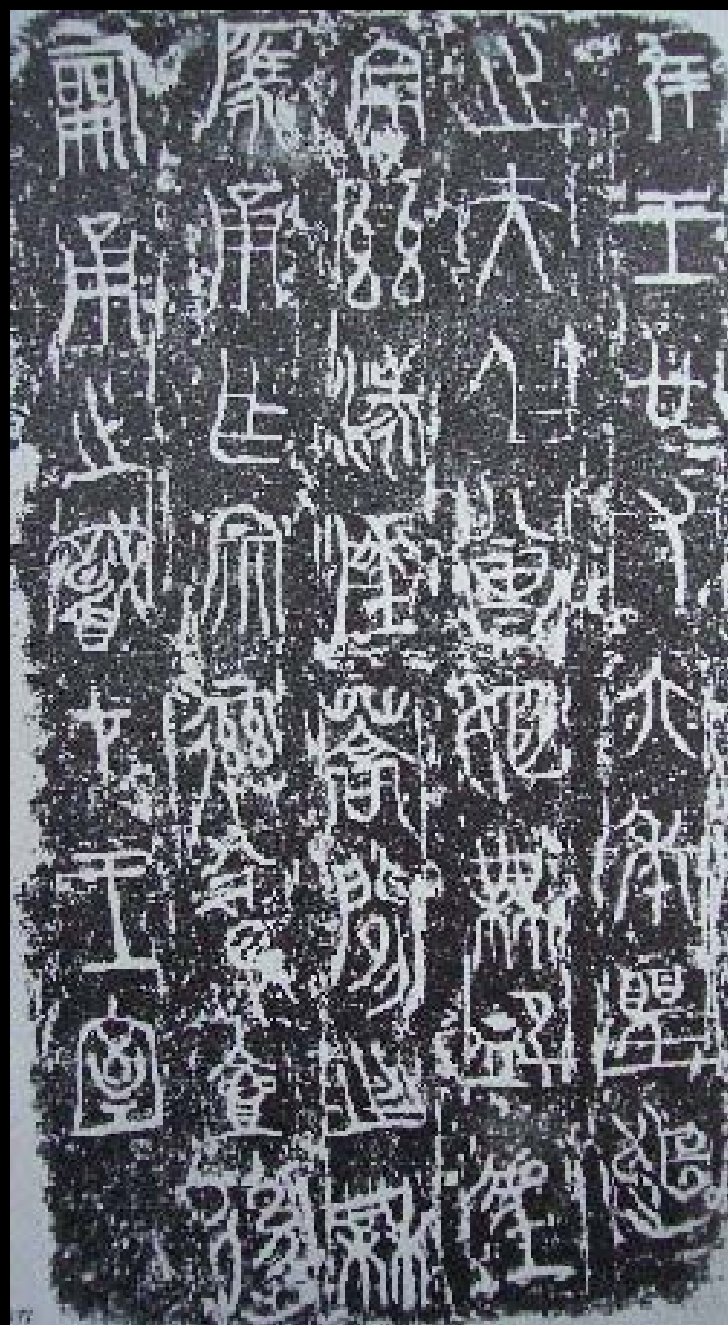 隹王廿又六年聖趄
之夫人曾姬無卹虖
宅茲漾陵蒿閒之無
匹甬乍宗彝尊壺後
嗣甬之職才王室